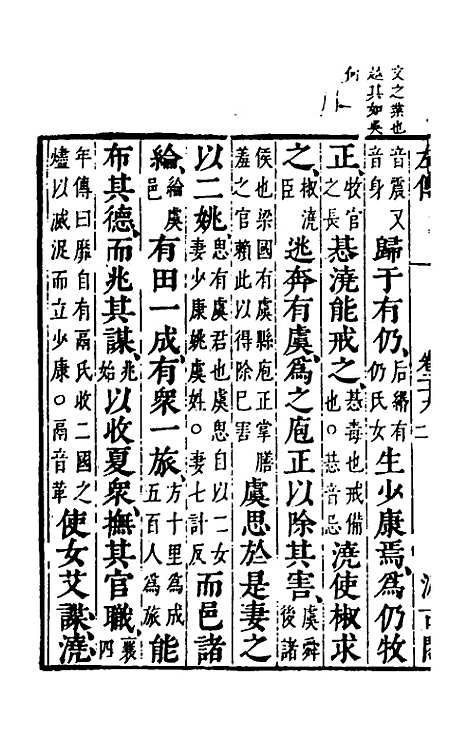 文之葉也
起其如吳
何
左傳 卷二十九 二 汲古閣
音震又音身歸于有仍、后緡有仍氏女生少康焉、爲仍牧
正、牧官之長惎澆能戒之、惎毒也戒備也○惎音忌澆使椒求
之、椒澆臣逃奔有虞、爲之庖正以除其害、虞舜後諸
侯也梁國有虞縣庖正掌膳羞之官賴此以得除己害虞思於是妻之
以二姚、思有虞君也虞思自以二女妻少康姚虞姓○妻七計反而邑諸
綸、綸虞邑有田一成、有衆一旅、方十里爲成五百人爲旅能
布其德、而兆其謀、兆始以收夏衆、撫其官職、襄四
年傳曰靡自有鬲氏收二國之燼以滅浞而立少康○鬲音革使女艾諜澆、